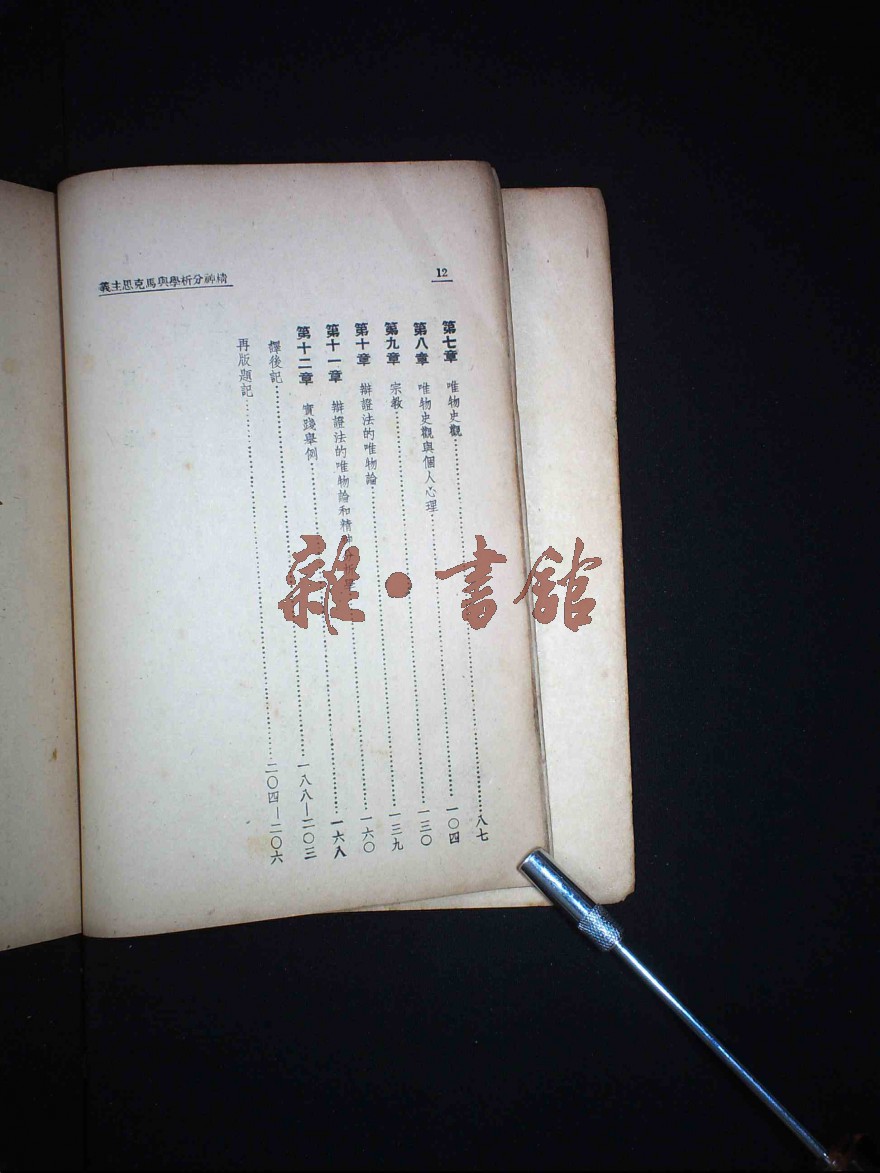 12
精神分析學與馬克思主義
第七章 唯物史觀……八七
第八章 唯物史觀與個人心理……一〇四
第九章 宗教……一三〇
第十章 辯證法的唯物論……一三九
第十一章 辯證法的唯物論和精神……一六〇
第十二章 實踐舉例……一六八
譯後記……一八八—二〇三
再版題記……二〇四—二〇六
雜·書館